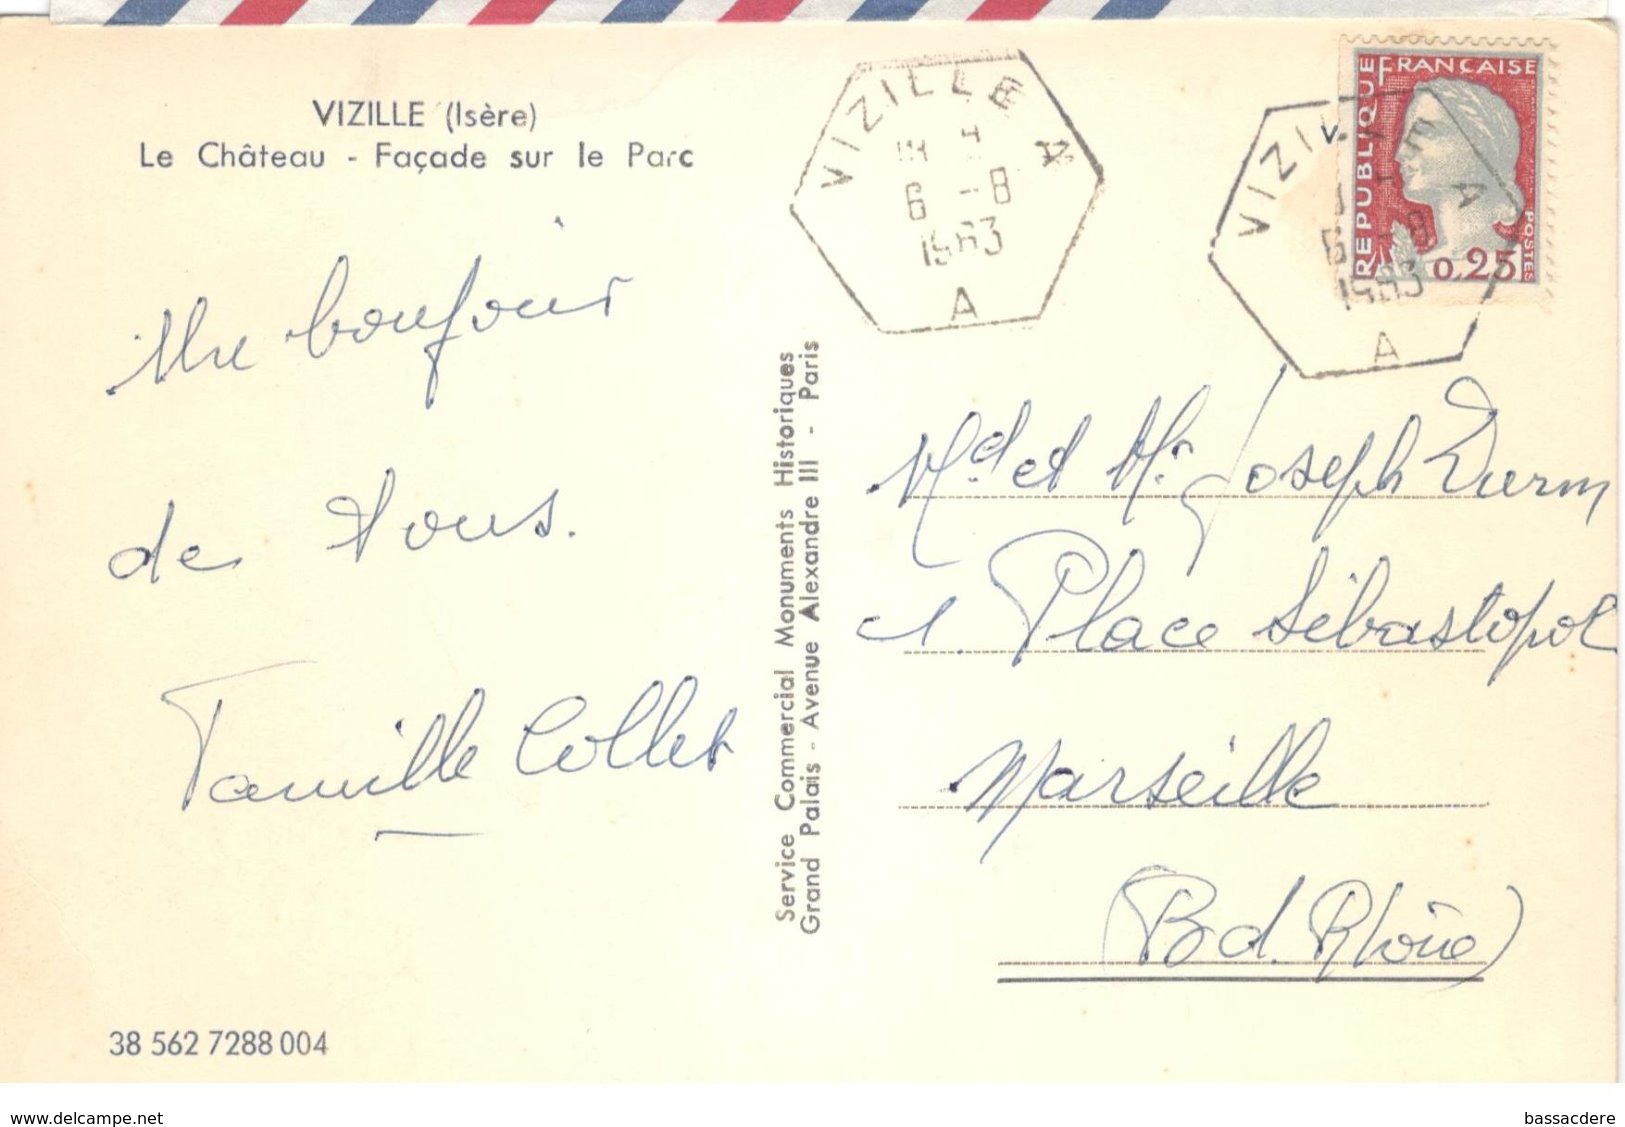 VIZILLE (Isère)
Le Château - Façade sur le Parc
Un bonjour
de tous.
Famille Collet
38 562 7288 004
Service Commercial Monuments Historiques
Grand Palais - Avenue Alexandre III - Paris
VIZILLE A
6 -8
1963
A
VIZILLE A
6 -8
1963
A
REPUBLIQUE FRANÇAISE
POSTES
0,25
Md et Mr Joseph Durm
1. Place Sébastopol
Marseille
(B d. Rhône)
www.delcampe.net
bassacdere